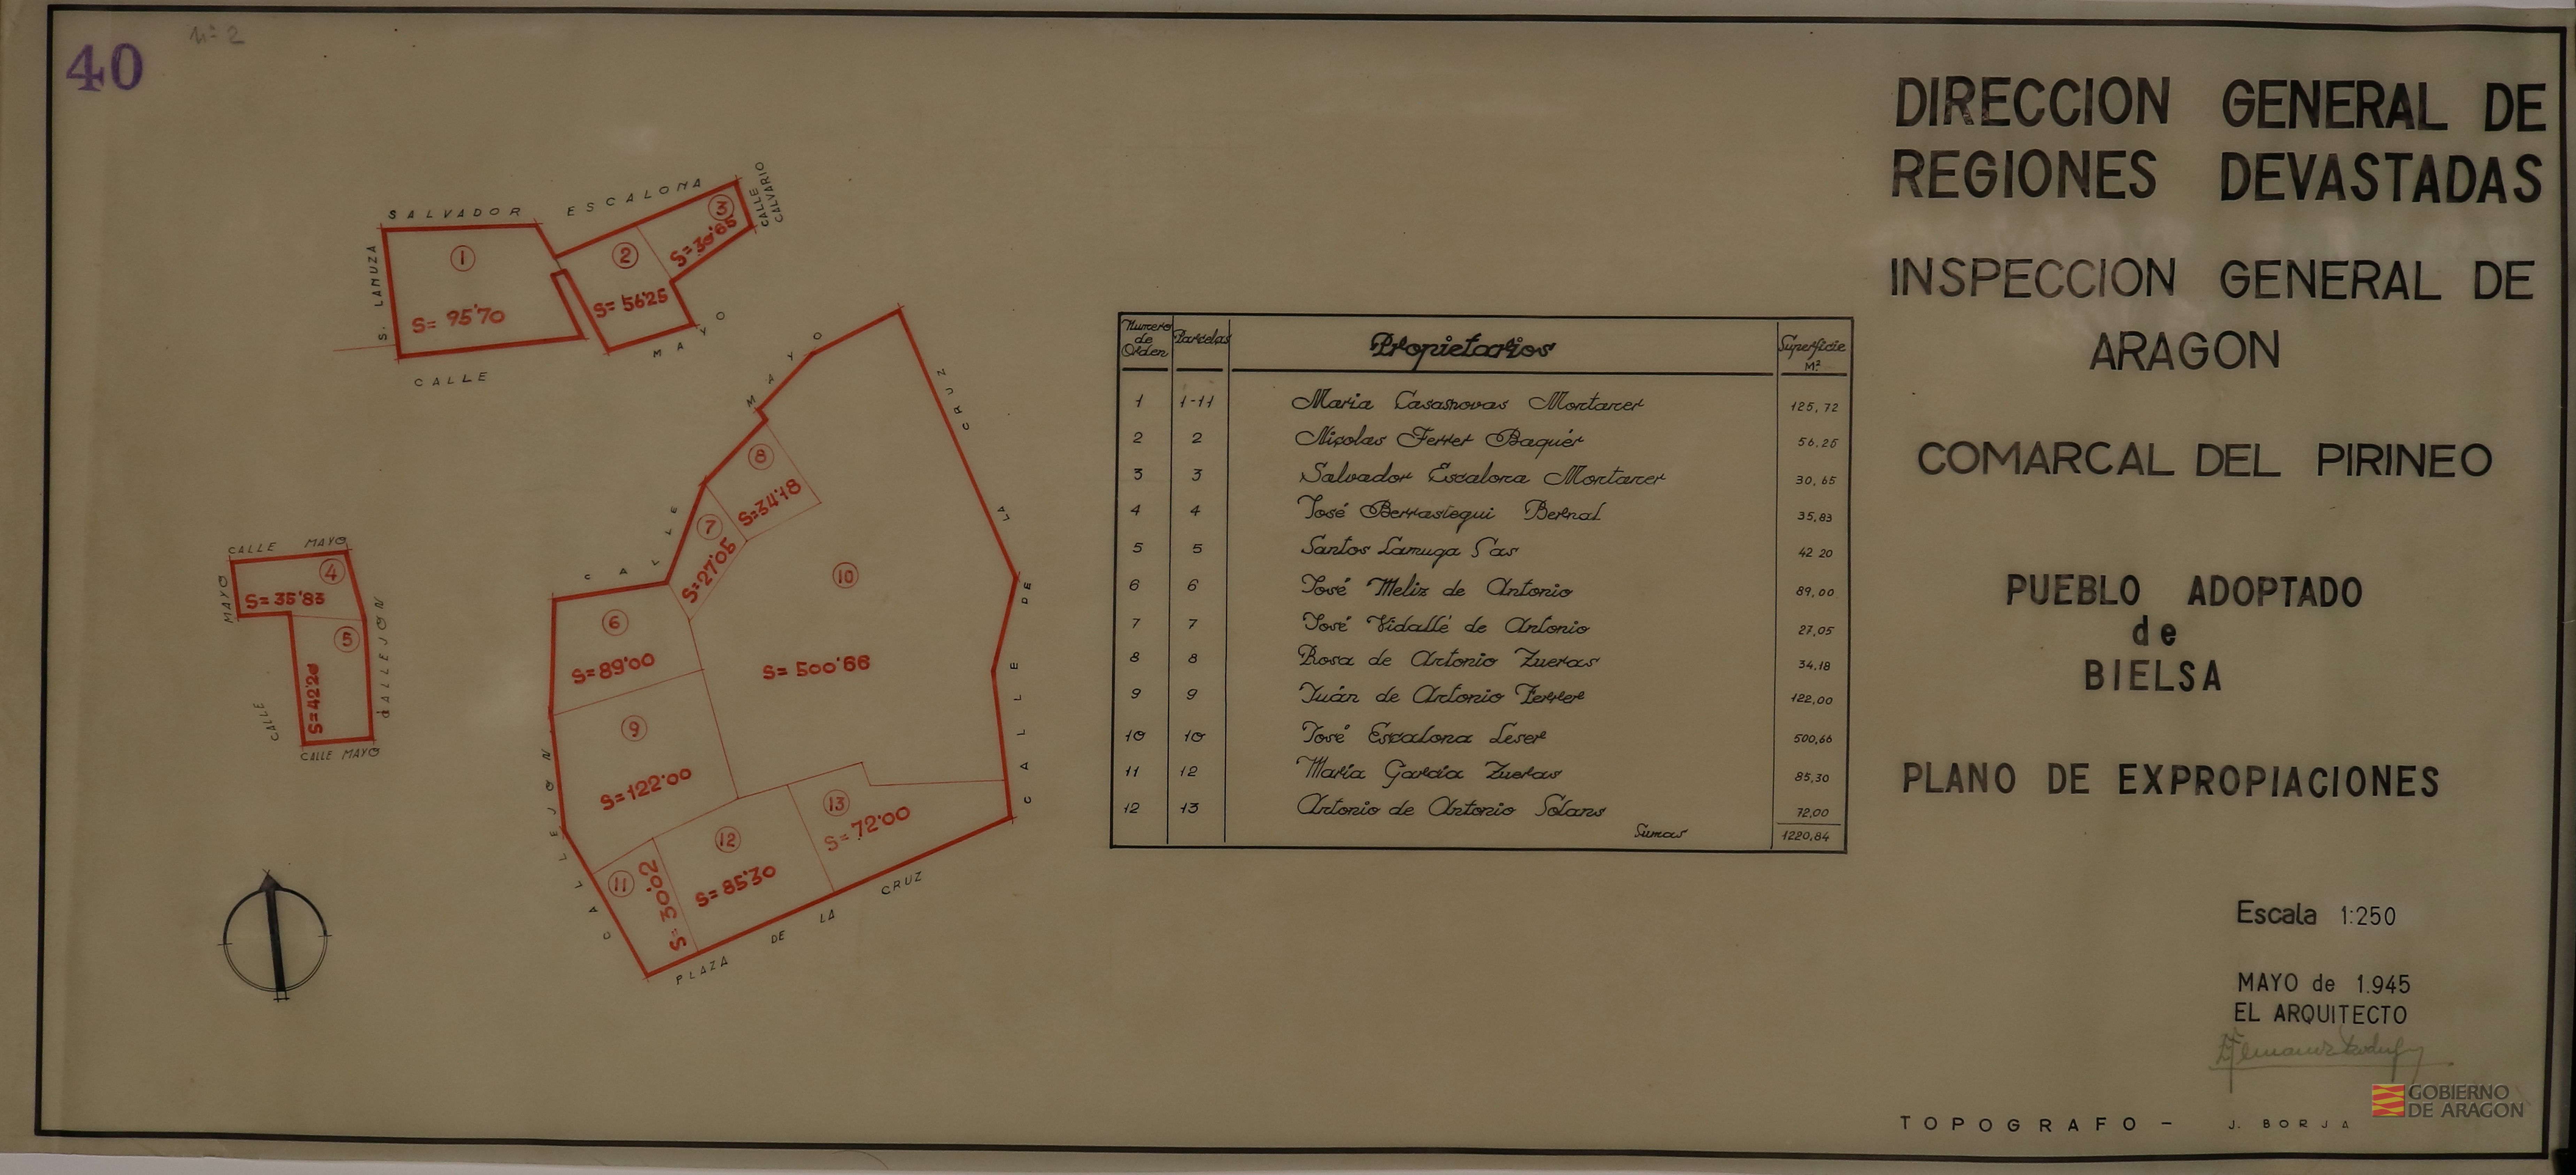 40
nº 2
SALVADOR ESCALONA
CALLE CALVARIO
S. LAMUZA
1
S= 95'70
2
S= 56'25
3
S= 30'65
CALLE MAYO
CALLE MAYO
MAYO
4
S= 35'83
5
S= 42'20
CALLE
CALLEJON
CALLE MAYO
CALLE MAYO
CALLE DE LA CRUZ
8
S= 34'18
7
S= 27'05
10
S= 500'66
6
S= 89'00
9
S= 122'00
13
S= 72'00
12
S= 85'30
11
S= 30'02
CALLEJON
PLAZA DE LA CRUZ
Numero de Orden Parcelas Propietarios Superficie M²
1 1-11 Maria Casasnovas Montaner 125,72
2 2 Nicolas Ferrer Baquér 56,25
3 3 Salvador Escalona Montaner 30,65
4 4 José Berrastegui Bernal 35,83
5 5 Santos Lamuga Sas 42 20
6 6 José Meliz de Antonio 89,00
7 7 José Vidallé de Antonio 27,05
8 8 Rosa de Antonio Zueras 34,18
9 9 Juán de Antonio Ferrer 122,00
10 10 José Escalona Leser 500,66
11 12 María García Zueras 85,30
12 13 Antonio de Antonio Solans 72,00
Sumas 1220,84
DIRECCION GENERAL DE
REGIONES DEVASTADAS
INSPECCION GENERAL DE
ARAGON
COMARCAL DEL PIRINEO
PUEBLO ADOPTADO
de
BIELSA
PLANO DE EXPROPIACIONES
Escala 1:250
MAYO de 1.945
EL ARQUITECTO
TOPOGRAFO - J. BORJA
GOBIERNO
DE ARAGON